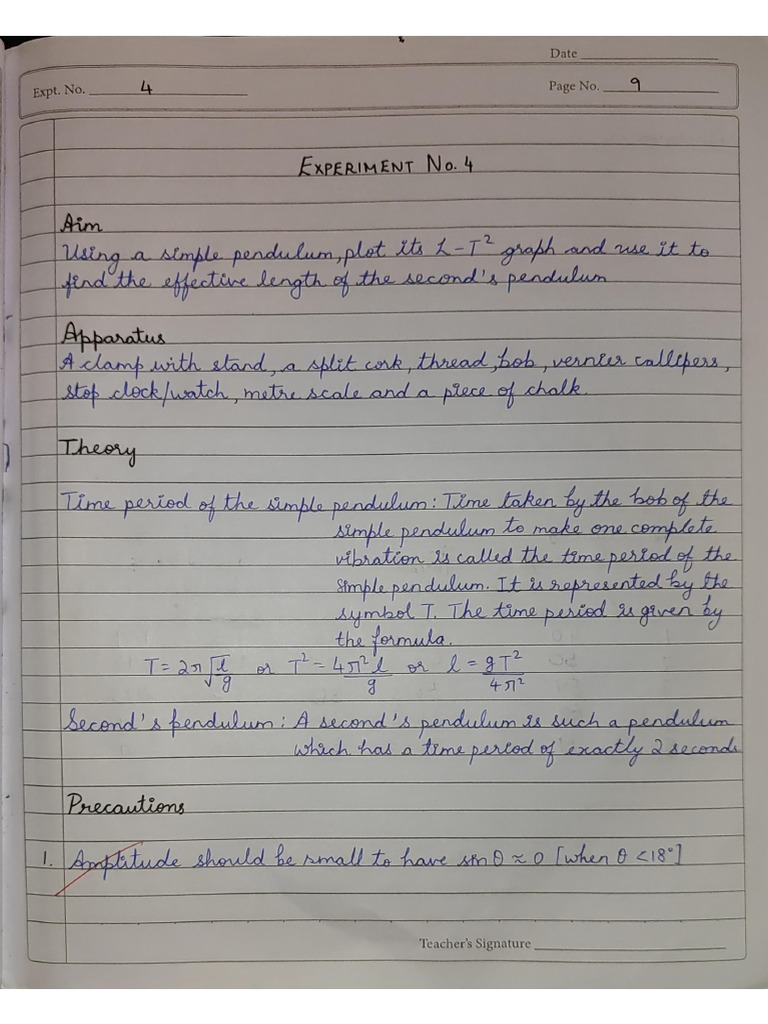 Date
Expt. No. 4
Page No. 9
EXPERIMENT No. 4
Aim
Using a simple pendulum, plot its L-T² graph and use it to
find the effective length of the second's pendulum
Apparatus
A clamp with stand, a split cork, thread, bob, vernier callipers,
stop clock/watch, metre scale and a piece of chalk.
Theory
Time period of the simple pendulum: Time taken by the bob of the
simple pendulum to make one complete
vibration is called the time period of the
simple pendulum. It is represented by the
symbol T. The time period is given by
the formula.
T = 2π√(l/g) or T² = 4π²l/g or l = gT²/4π²
Second's pendulum: A second's pendulum is such a pendulum
which has a time period of exactly 2 seconds
Precautions
1. Amplitude should be small to have sin θ ≈ 0 [when θ < 18°]
Teacher's Signature